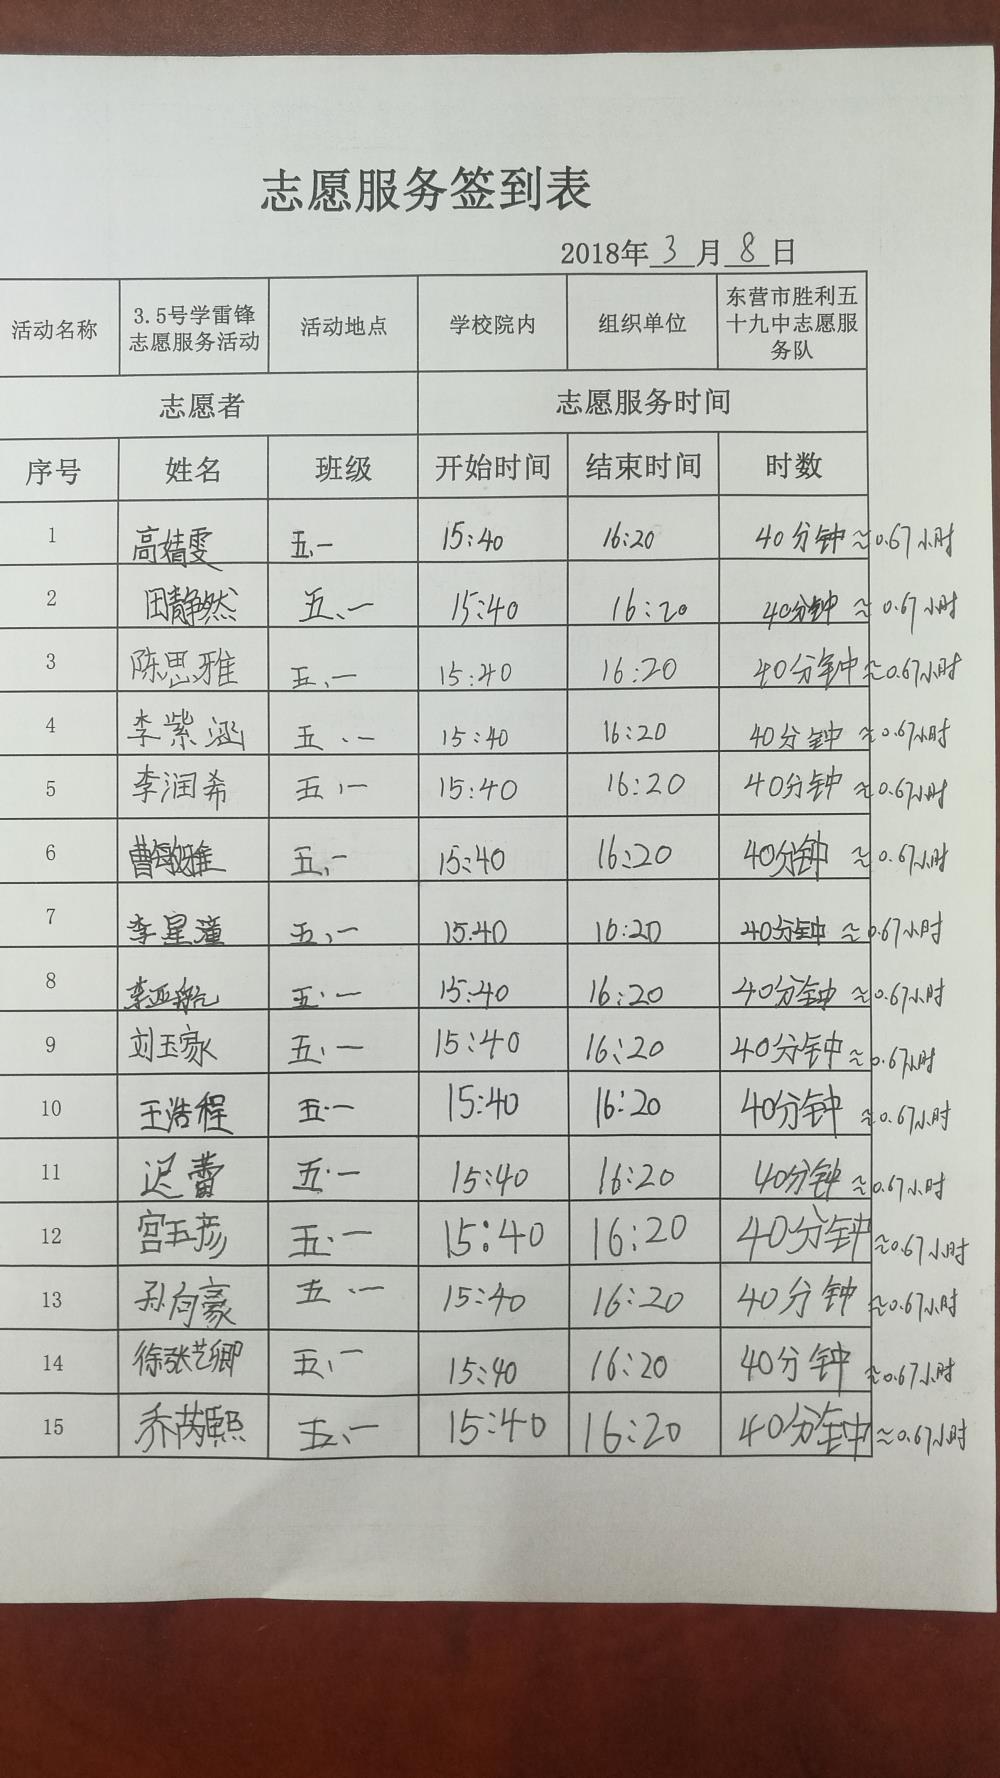 志愿服务签到表
2018年 3 月 8 日
活动名称 3.5号学雷锋志愿服务活动 活动地点 学校院内 组织单位 东营市胜利五十九中志愿服务队
志愿者 志愿服务时间
序号 姓名 班级 开始时间 结束时间 时数
1 高婧雯 五.一 15:40 16:20 40分钟≈0.67小时
2 田静然 五、一 15:40 16:20 40分钟≈0.67小时
3 陈思雅 五、一 15:40 16:20 40分钟≈0.67小时
4 李紫涵 五.一 15:40 16:20 40分钟≈0.67小时
5 李润希 五.一 15:40 16:20 40分钟≈0.67小时
6 曹雅 五、一 15:40 16:20 40分钟≈0.67小时
7 李星潼 五、一 15:40 16:20 40分钟≈0.67小时
8 李亚航 五.一 15:40 16:20 40分钟≈0.67小时
9 刘玉 五.一 15:40 16:20 40分钟≈0.67小时
10 王浩程 五.一 15:40 16:20 40分钟≈0.67小时
11 迟蕾 五.一 15:40 16:20 40分钟≈0.67小时
12 宫玉彦 五.一 15:40 16:20 40分钟≈0.67小时
13 孙向豪 五.一 15:40 16:20 40分钟≈0.67小时
14 徐张艺卿 五、一 15:40 16:20 40分钟≈0.67小时
15 乔芮熙 五、一 15:40 16:20 40分钟≈0.67小时